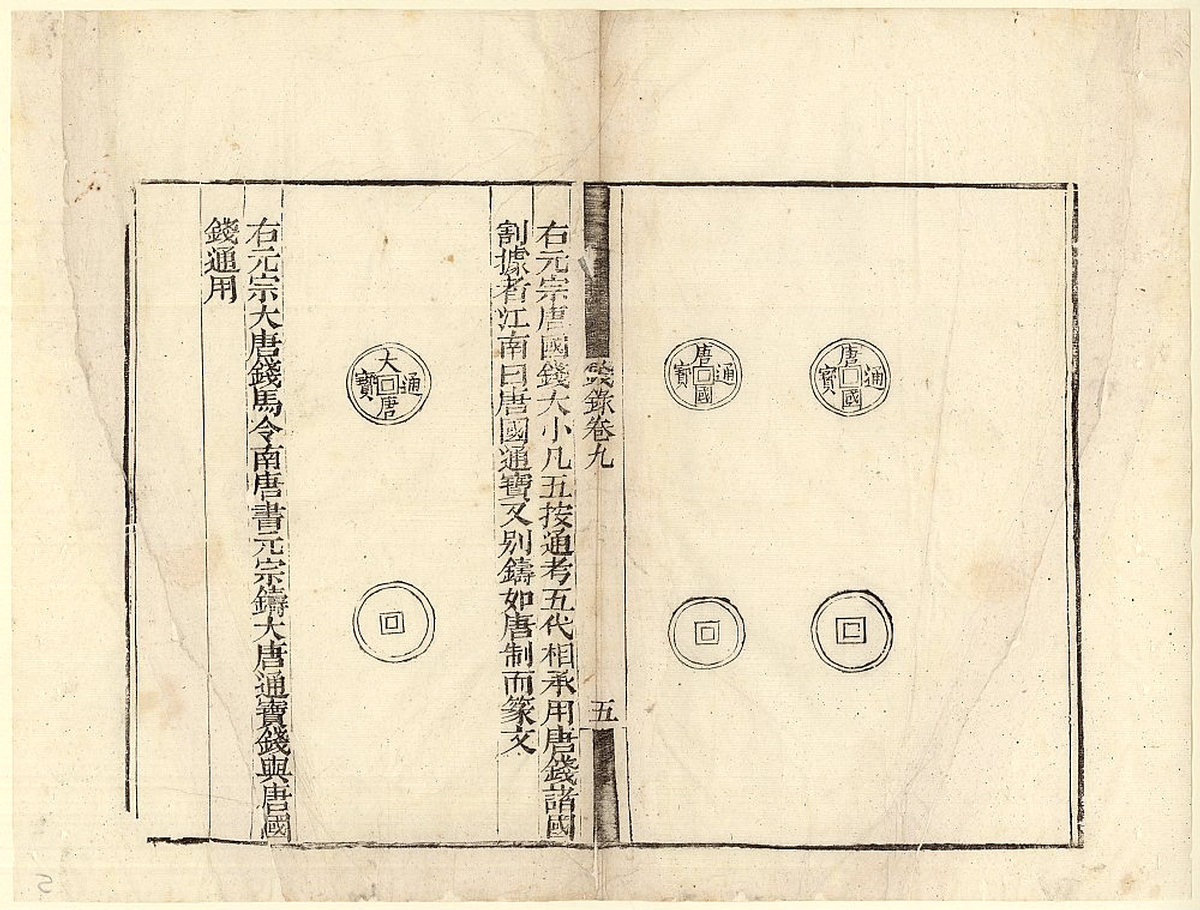 唐國通寶
唐國通寶
錢錄卷九
五
右元宗唐國錢大小凡五按通考五代相承用唐錢諸國
割據者江南曰唐國通寶又别鑄如唐制而篆文
大唐通寶
右元宗大唐錢馬令南唐書元宗鑄大唐通寶錢與唐國
錢通用